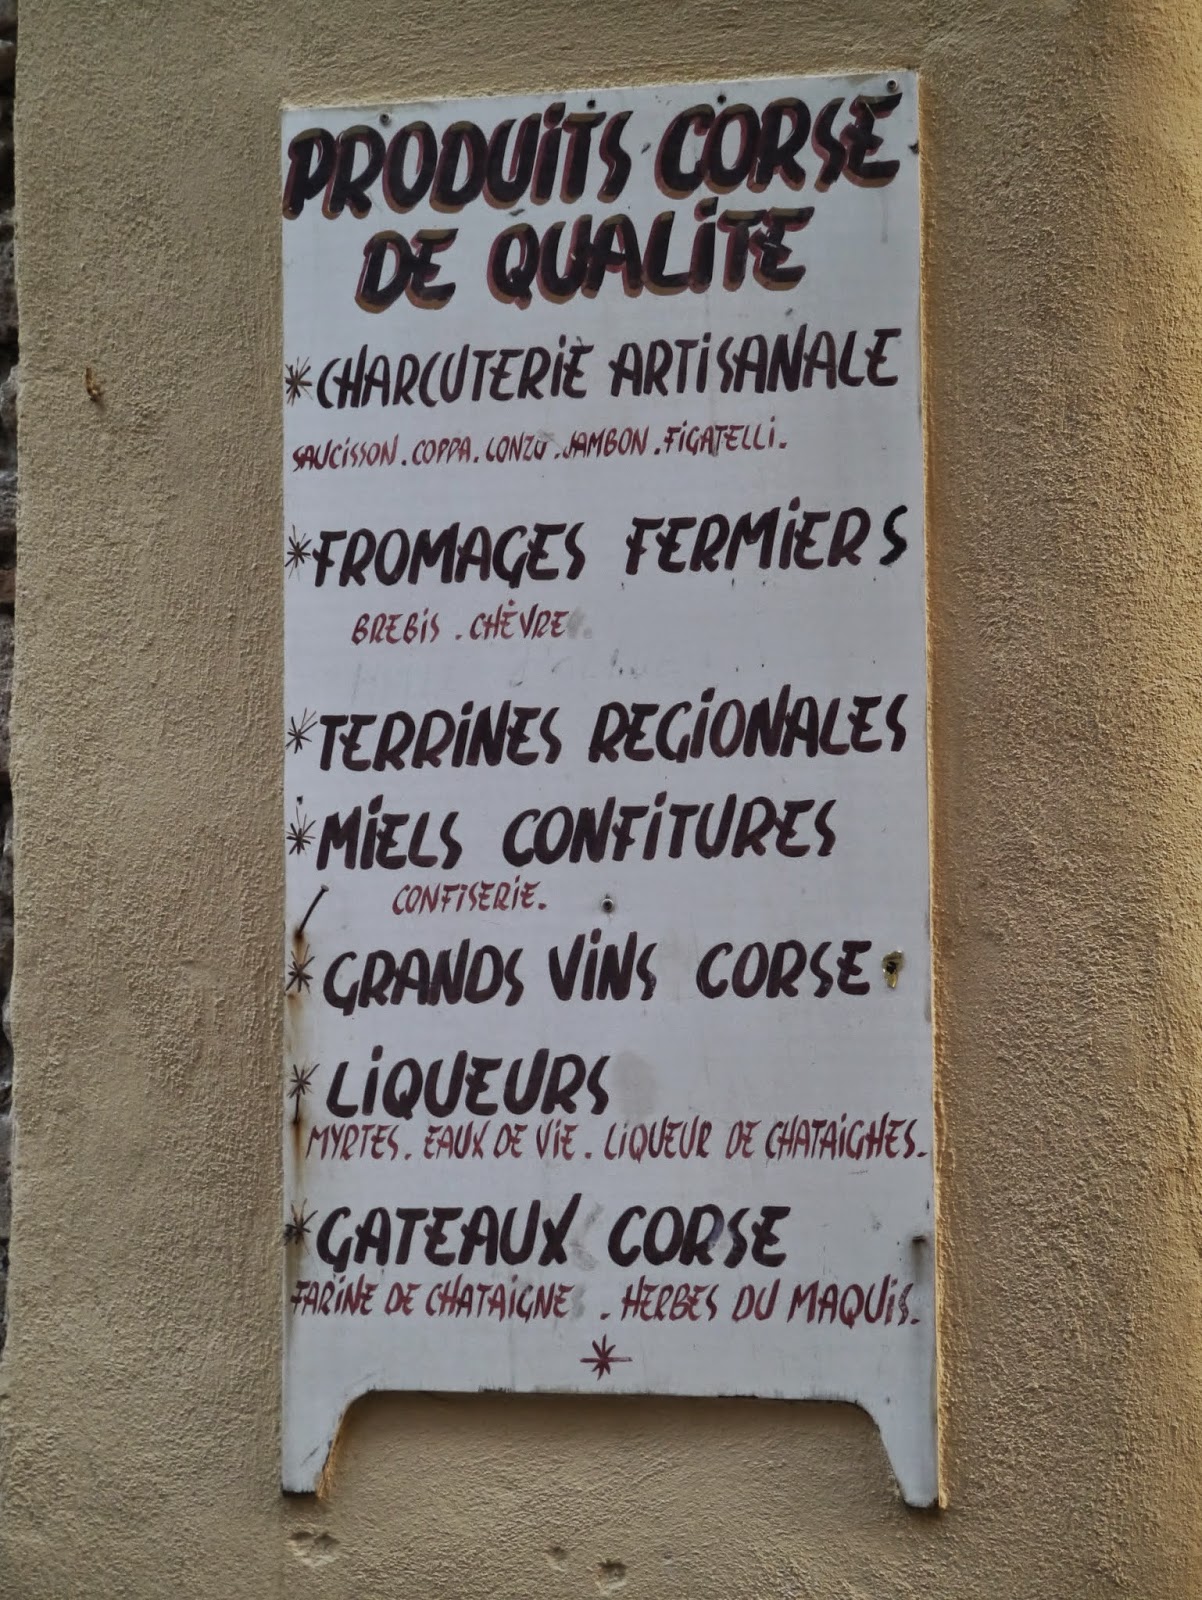 PRODUiTS CORSE
DE QUALiTE
*CHARCUTERiE ARTiSANALE
SAUCiSSON . COPPA . LONZU . JAMBON . FiGATELLi.
*FROMAGES FERMiERS
BREBiS . CHÈVRE
*TERRiNES REGiONALES
*MiELS CONFiTURES
CONFiSERiE.
*GRANDS ViNS CORSE
* LiQUEURS
MYRTES. EAUX DE ViE . LiQUEUR DE CHATAiGHES.
*GATEAUX CORSE
FARiNE DE CHATAiGNE . HERBES DU MAQUiS.
*